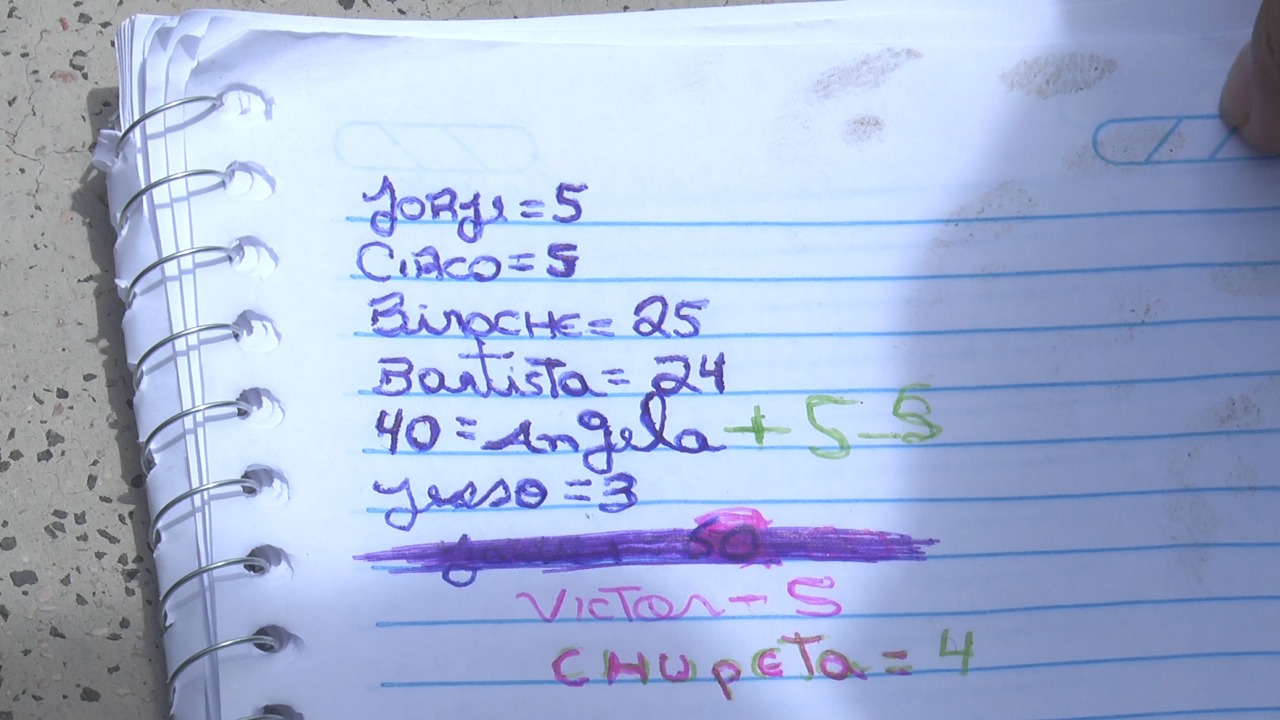 Jorge = 5
CiRCO = 5
BiroCHE = 25
Bartista = 24
40 = Angela + 5-5
= 3
50
VICTOR - 5
CHUPETA = 4